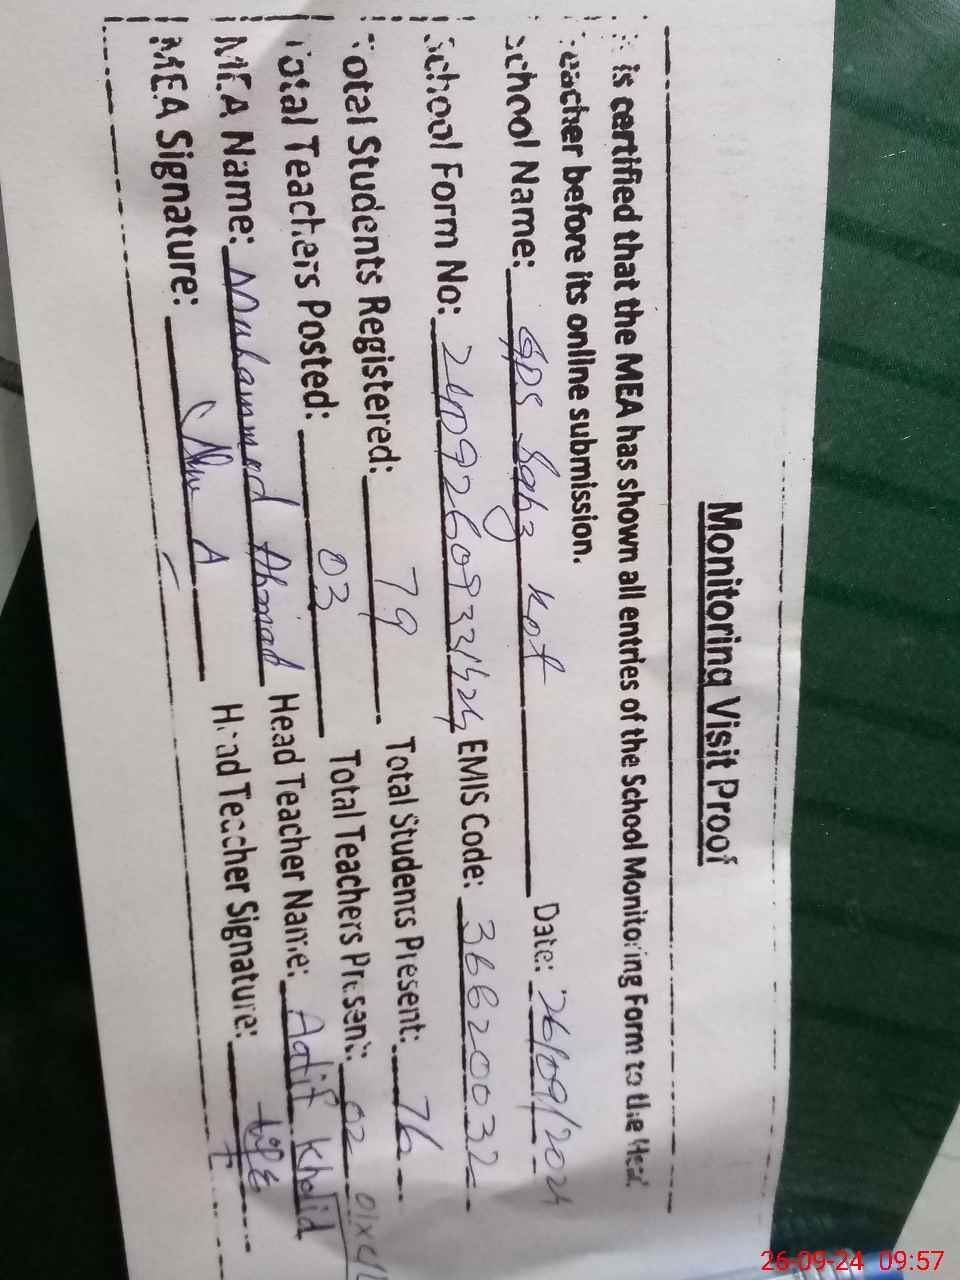 Monitoring Visit Proof
is certified that the MEA has shown all entries of the School Monitoring Form to the Head
Teacher before its online submission.
School Name: GPS Kot Date: 26/09/2024
School Form No: EMIS Code: 36620032
Total Students Registered: 79 Total Students Present: 76
Total Teachers Posted: 03 Total Teachers Present: 02
MEA Name: Muhammad Ahmad Head Teacher Name: Aatif Khalid
MEA Signature: Head Teacher Signature:
26-09-24 09:57